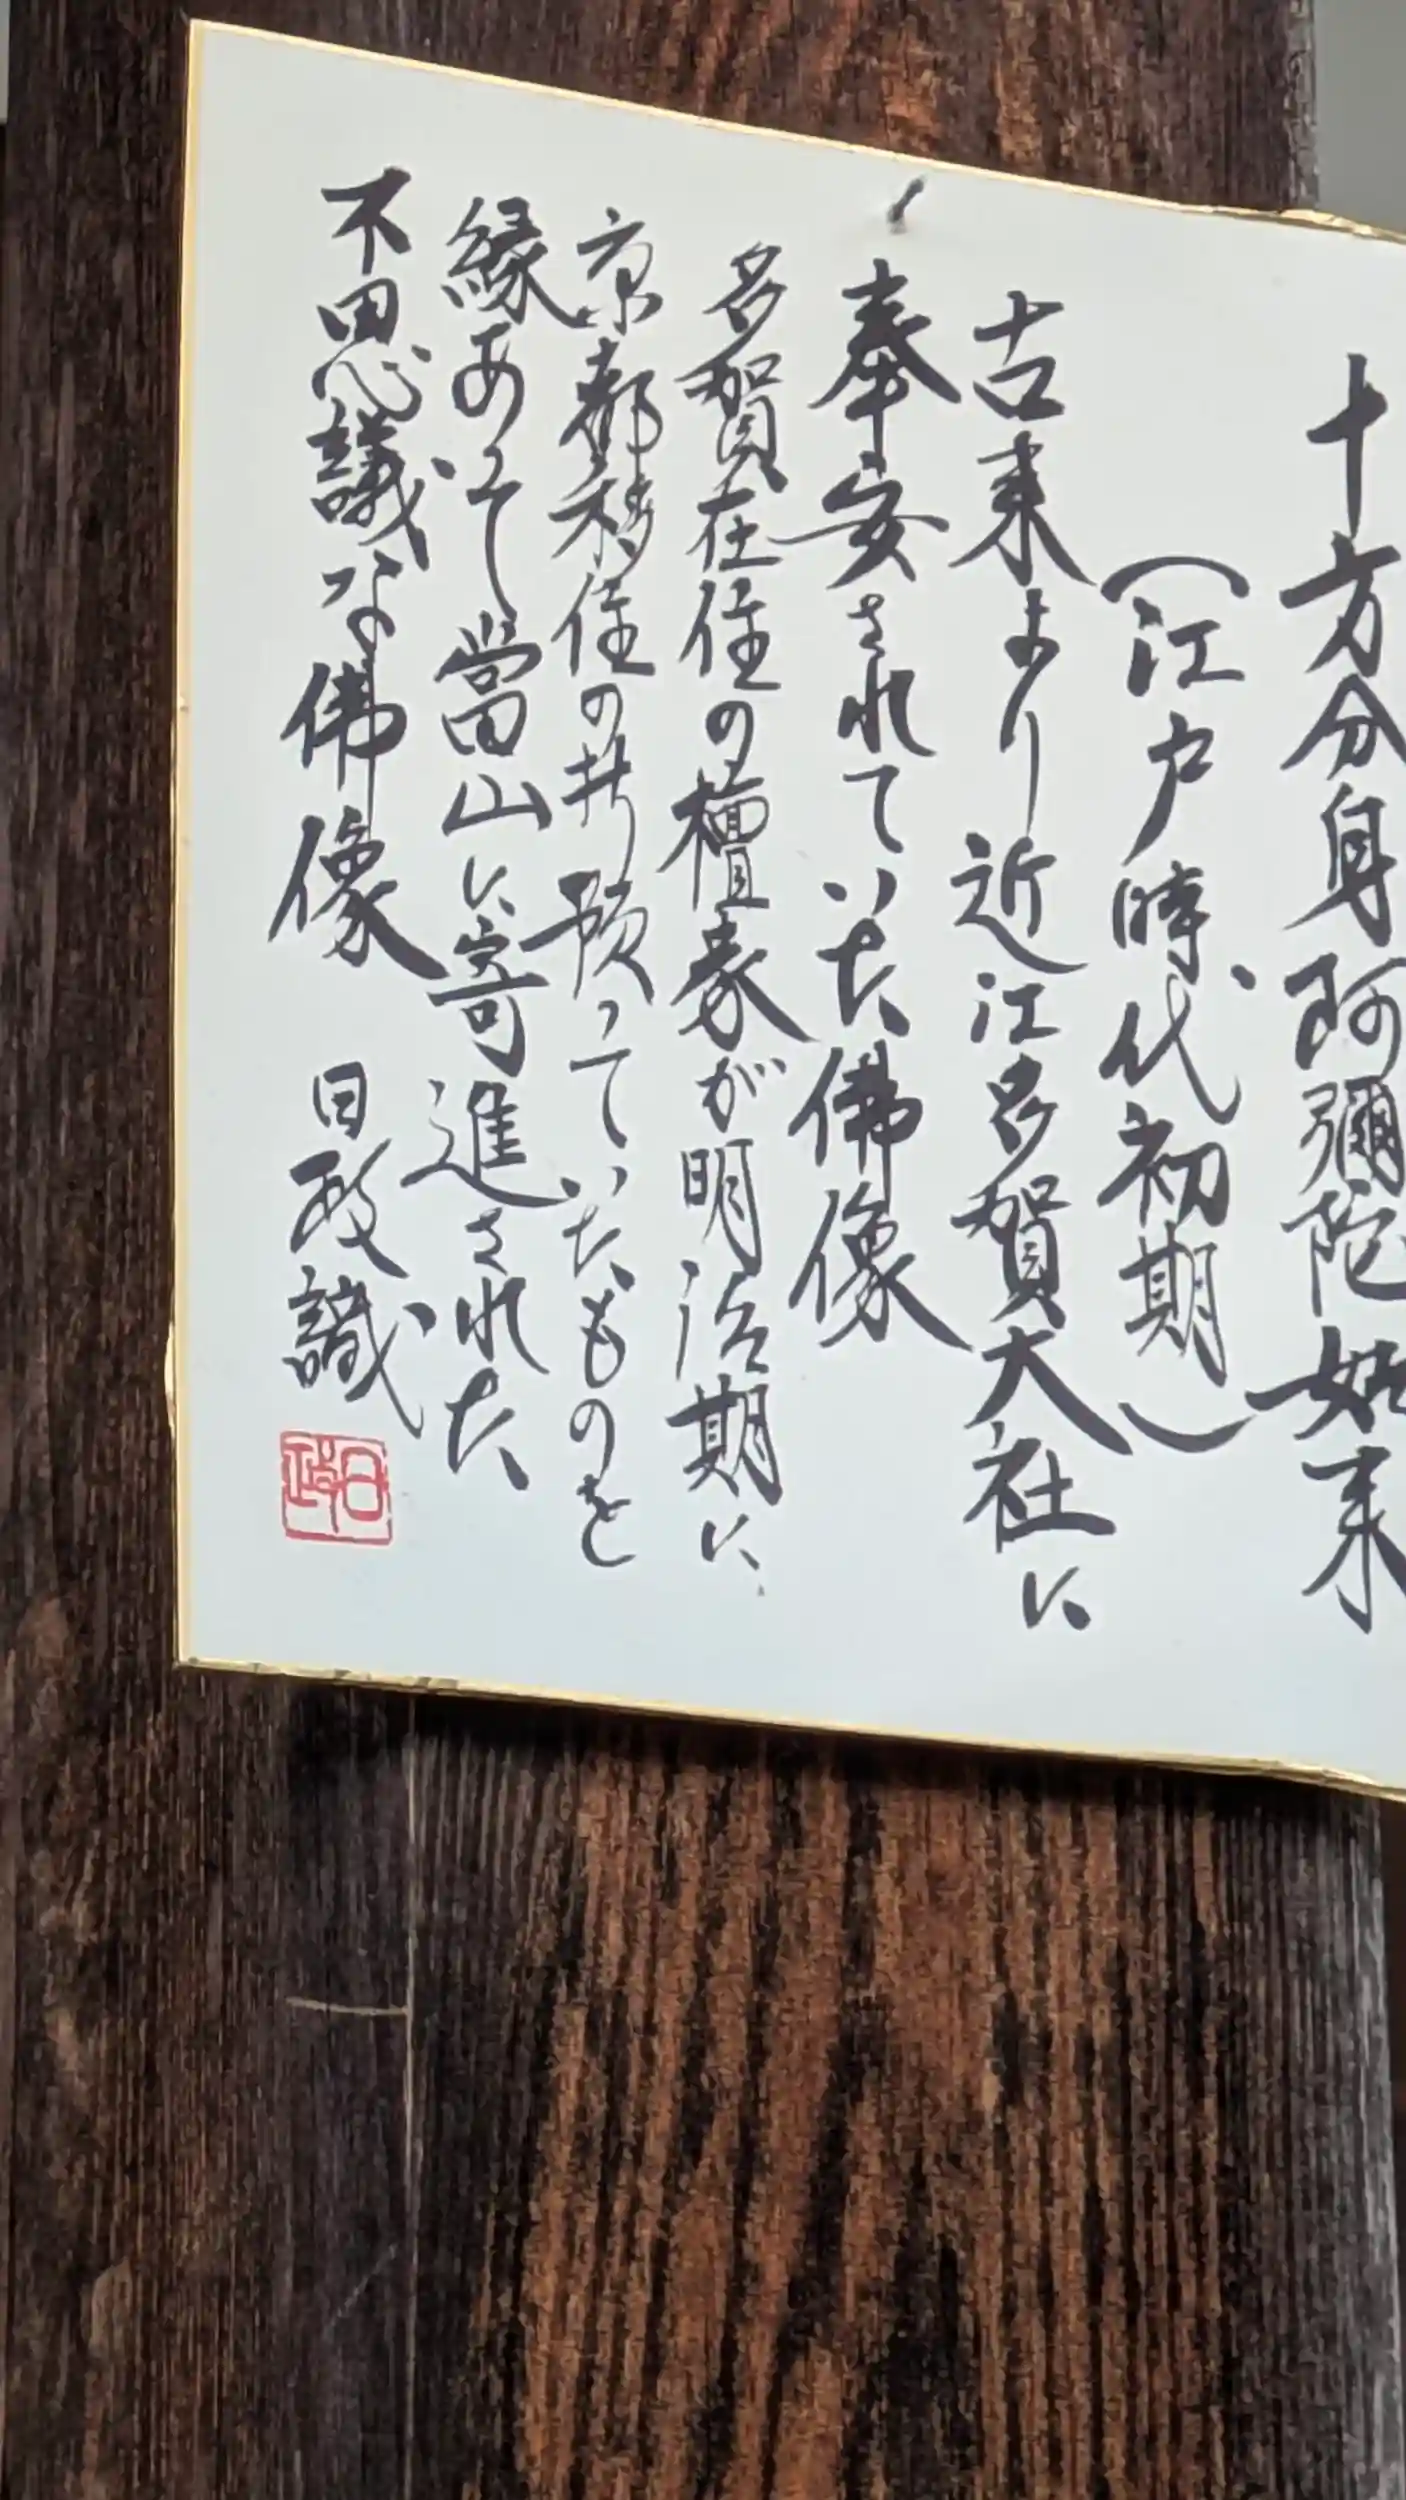 十方分身阿彌陀如来
（江戸時代初期）
古来より近江多賀大社に
奉安されていた佛像
多賀在住の檀家が明治期に
京都移住の折預っていたものを
縁あって當山に寄進された
不思議な佛像 日政識
日政